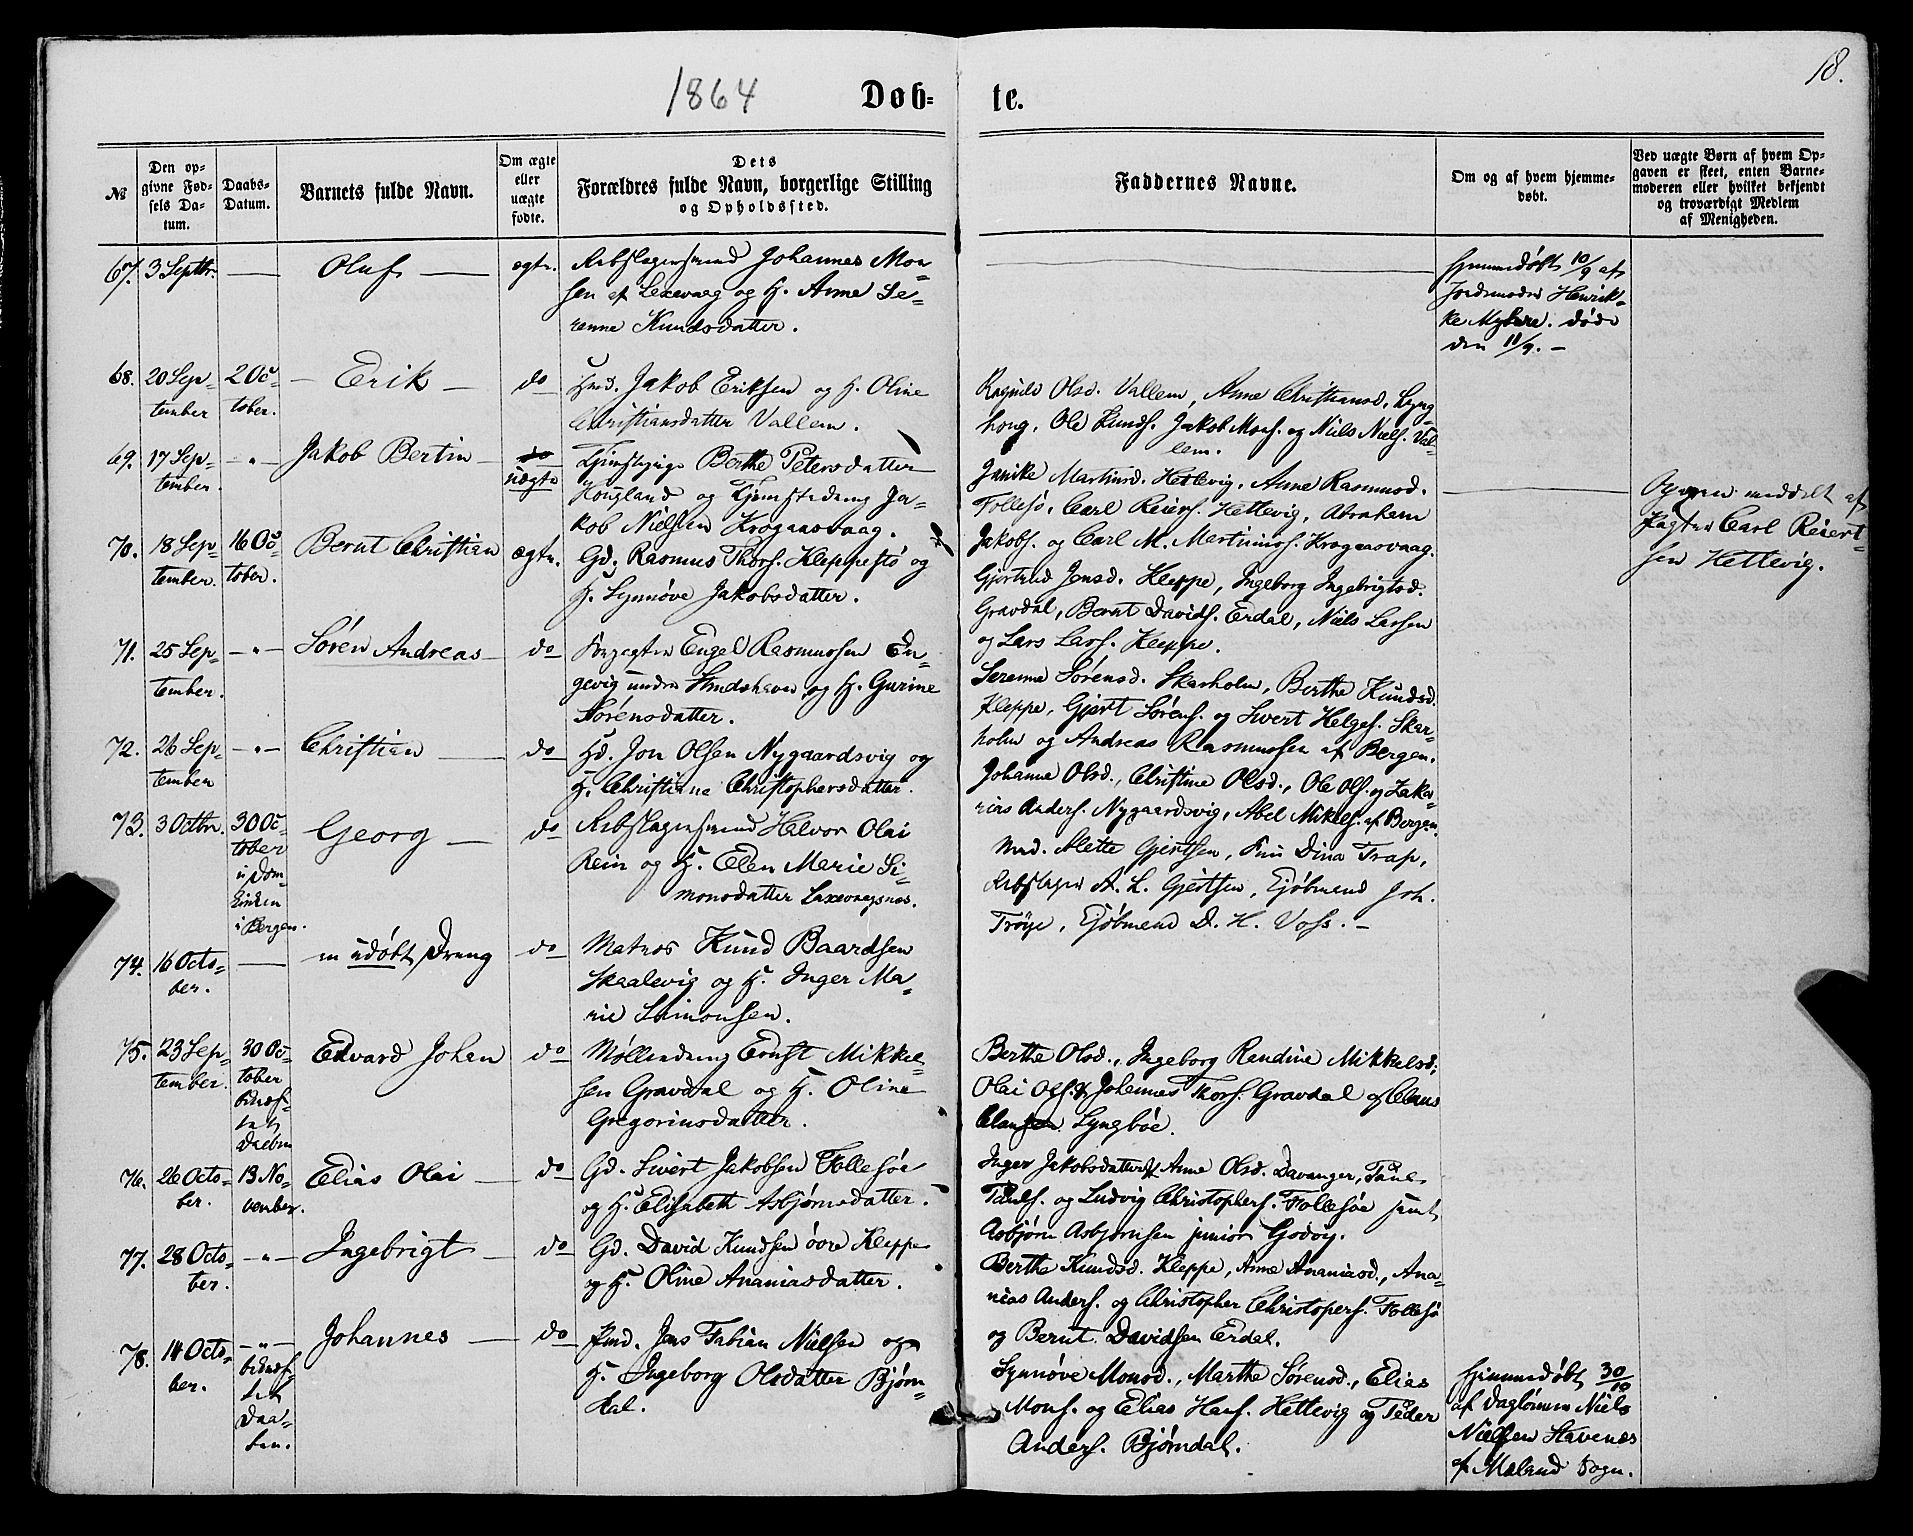 18.
1864 Døb-te.
№
Den op-
givne Fød-
sels Da-
tum.
Daabs-
Datum.
Barnets fulde Navn.
Om ægte
eller
uægte
fødte.
Dets
Forældres fulde Navn, borgerlige Stilling
og Opholdssted.
Faddernes Navne.
Om og af hvem hjemme-
døbt.
Ved uægte Børn af hvem Op-
gaven er skeet, enten Barne-
moderen eller hvilket bekjendt
og troværdigt Medlem
af Menigheden.
67. 3 Septbr. — Oluf — ægte. Rebslagersvend Johannes Mon-
sen af Laxevaag og H. Anne Se-
renne Knudsdatter.
Hjemmedøbt 10/9 af
Jordemoder Henrik-
ke Myhre. døde
den 11/9. —
68. 20 Sep- 2 Oc- — Erik — do Hmd. Jakob Eriksen og H. Oline
tember tober. Christiansdatter Vallem.
Ragnild Olsd. Vallem, Anne Christiansd. Lyng-
houg, Ole Knuds. Jakob Mons. og Niels Niels. Val-
lem.
69. 17 Sep- — " — Jakob Bertin — do
tember. uægte
Tjenstepige Berthe Petersdatter
Hougland og Tjenstedreng Ja-
kob Nielsen Krogaasvaag.
Janike Martinsd. Hettevig, Anne Rasmusd.
Follesö, Carl Reiers. Hettevig, Abraham
Jakobs. og Carl M. Martinus. Krogaasvaag.
Opgaven meddelt af
Fagter Carl Reiert-
sen Hettevig.
70. 18 Sep- 16 Oc- Bernt Christian ægte. Gd. Rasmus Thors. Kleppestö og
tember. tober. H. Synnöve Jakobsdatter.
Gjertrud Jensd. Kleppe, Ingeborg Ingebrigtsd.
Gravdal, Bernt Davids. Erdal, Niels Larsen
og Lars Lars. Kleppe.
71. 25 Sep- — " — Sören Andreas — do Forpagter Engel Rasmussen En-
tember. gevig under Strudshavn og H. Gurine
Sörensdatter.
Serenne Sörensd. Skarholm, Berthe Knudsd.
Kleppe, Gjert Sörens. og Sivert Helges. Skar-
holm og Andreas Rasmussen af Bergen.
72. 26 Sep- — " — Christian — do Hd. Jon Olsen Nygaardsvig og
tember H. Christiane Christophersdatter.
Johanne Olsd., Christine Olsd., Ole Ols. og Zaka-
rias Anders. Nygaardsvig, Abel Mikels. af Bergen.
73. 3 Octbr. 30 Oc-
tober
i Dom-
kirken
i Bergen.
Georg — do Rebslagersvend Halvor Olai
Rein og H. Elen Marie Si-
monsdatter Laxevaagsnæs.
Mad. Alette Gjertsen, Frue Dina Trap,
Rebslager A. L. Gjertsen, Kjöbmand Joh.
Tröye, Kjöbmand D. H. Voss. —
74. 16 Octo- — en udöbt Dreng do Matros Knud Baardsen
ber. Skaalevig og H. Inger Ma-
rie Simonsen.
75. 23 Sep- 30 Oc-
tember. tober
bekræf-
tet
Daaben
Edvard Johan do Möllerdreng Ernst Mikkel-
sen Gravdal og H. Oline
Gregoriusdatter.
Berthe Olsd., Ingeborg Randine Mikkelsd.,
Olai Ols. & Johannes Thors. Gravdal og Claus
Clausen Lyngböe.
76. 26 Octo- 13 No- Elias Olai — do Gd. Sivert Jakobsen Follesöe
ber. vember. og H. Elisabeth Asbjørnsdatter.
Inger Jakobsdatter & Anne Olsd. Davanger, Paul
Pauls. og Ludvig Christophers. Follesöe samt
Asbjørn Asbjørnsen junior Godvig.
77. 28 Octo- — " — Ingebrigt — do Gd. David Knudsen övre Kleppe
ber. og H. Oline Ananiasdatter.
Berthe Knudsd. Kleppe, Anne Ananiasd., Ana-
nias Anders. og Christopher Christopers. Follesö
og Bernt Davidsen Erdal.
78. 14 Octo- — " —
ber. bekræf-
tet
Daa-
ben.
Johannes — do Hmd. Jens Fabian Nielsen og
H. Ingeborg Olsdatter Bjørn-
dal.
Synnöve Monsd., Marthe Sörensd., Elias
Mons. og Elias Hans. Hettevig og Peder
Anders. Bjørndal.
Hjemmedøbt 30/10
af Daglönnen Niels
Nielsen Stavenæs
af Meland Sogn.